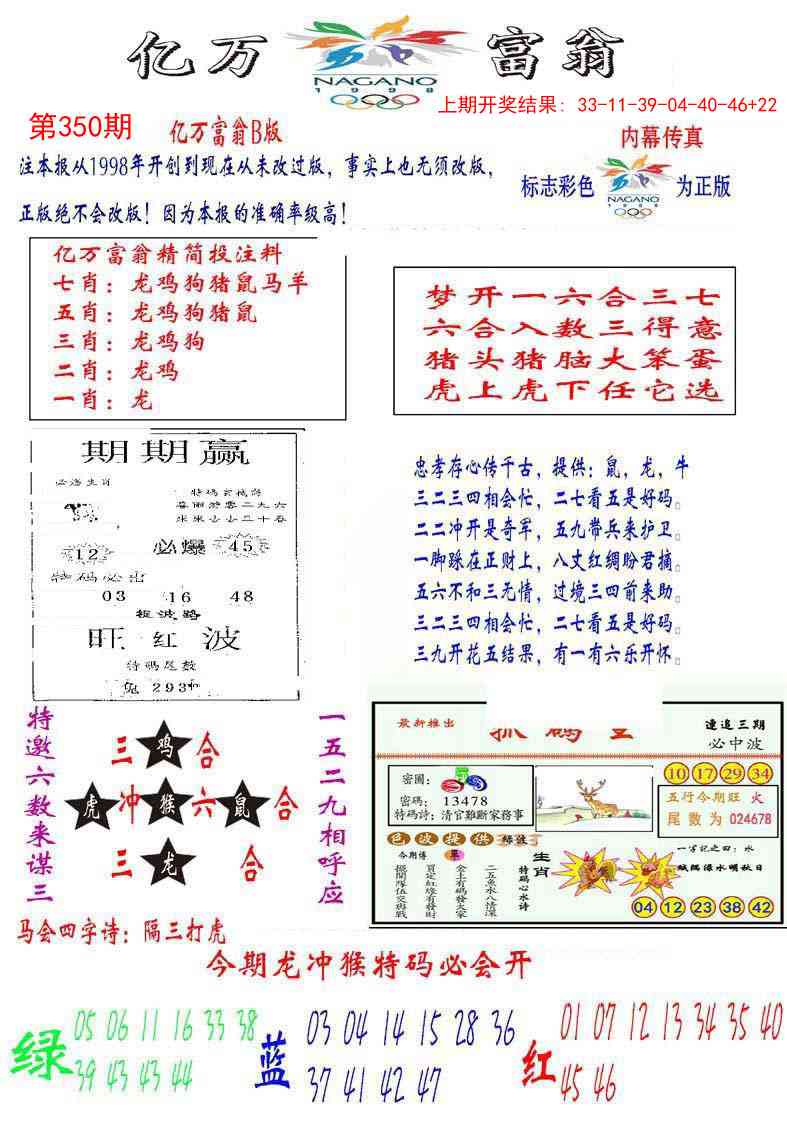 亿万 富翁
NAGANO
1998
上期开奖结果: 33-11-39-04-40-46+22
第350期
亿万富翁B版
内幕传真
注本报从1998年开创到现在从未改过版，事实上也无须改版，
正版绝不会改版！因为本报的准确率级高！
标志彩色
NAGANO
1998
为正版
亿万富翁精简投注料
七肖：龙鸡狗猪鼠马羊
五肖：龙鸡狗猪鼠
三肖：龙鸡狗
二肖：龙鸡
一肖：龙
梦开一六合三七
六合入数三得意
猪头猪脑大笨蛋
虎上虎下任它选
期期赢
12
必爆
45
特码必出
03 16 48
旺红波
特码尾数
兔 293
忠孝存心传千古，提供：鼠，龙，牛
三二三四相会忙，二七看五是好码。
二二冲开是奇军，五九带兵来护卫。
一脚踩在正财上，八丈红绸盼君摘。
五六不和三无情，过境三四前来助。
三二三四相会忙，二七看五是好码。
三九开花五结果，有一有六乐开怀。
特邀六数来谋三
三 鸡 合
虎 冲 猴 六 鼠 合
三 龙 合
一五二九相呼应
马会四字诗：隔三打虎
最新推出
連追三期
必中波
密圖：
密碼：13478
特碼詩：清官難斷家務事
10 17 29 34
五行今期旺 火
尾數为 024678
色波提供
今期博
生肖
特码心水诗
二五魚水八情深
金上有碼發大家
買定紅綠有發財
擺開隊伍交班戰
一字記之曰：水
04 12 23 38 42
今期龙冲猴特码必会开
绿
05 06 11 16 33 38
39 43 43 44
蓝
03 04 14 15 28 36
37 41 42 47
红
01 07 12 13 34 35 40
45 46